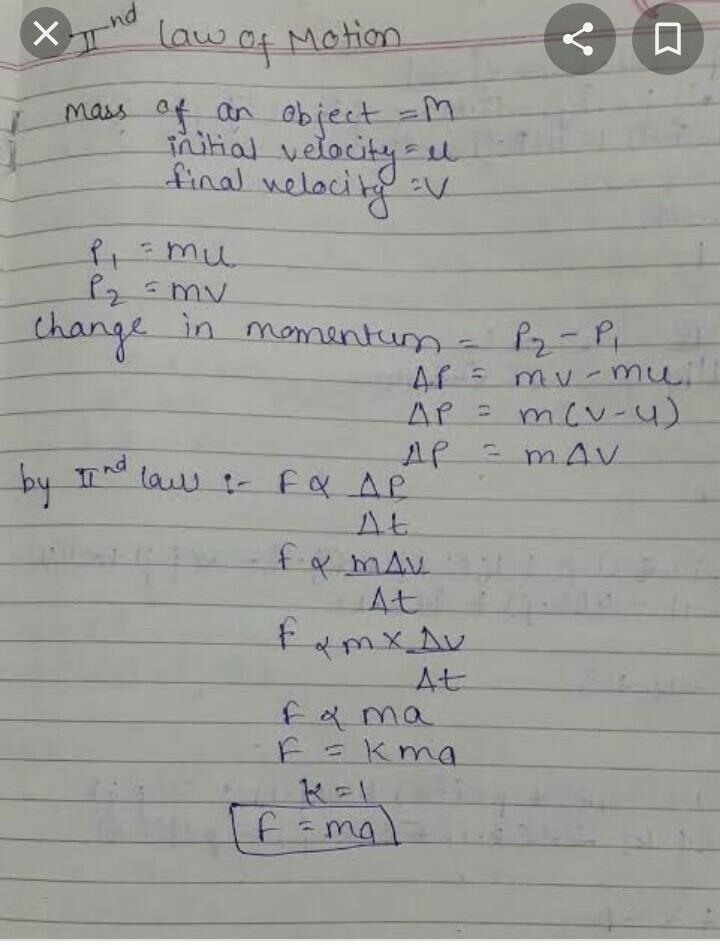 IInd law of Motion
mass of an object = m
initial velocity = u
final velocity = v
P1 = mu
P2 = mv
change in momentum = P2 - P1
ΔP = mv - mu
ΔP = m(v-u)
ΔP = mΔV
by IInd law :- F ∝ ΔP
Δt
F ∝ mΔv
Δt
F ∝ m × Δv
Δt
F ∝ ma
F = kma
k = 1
F = ma